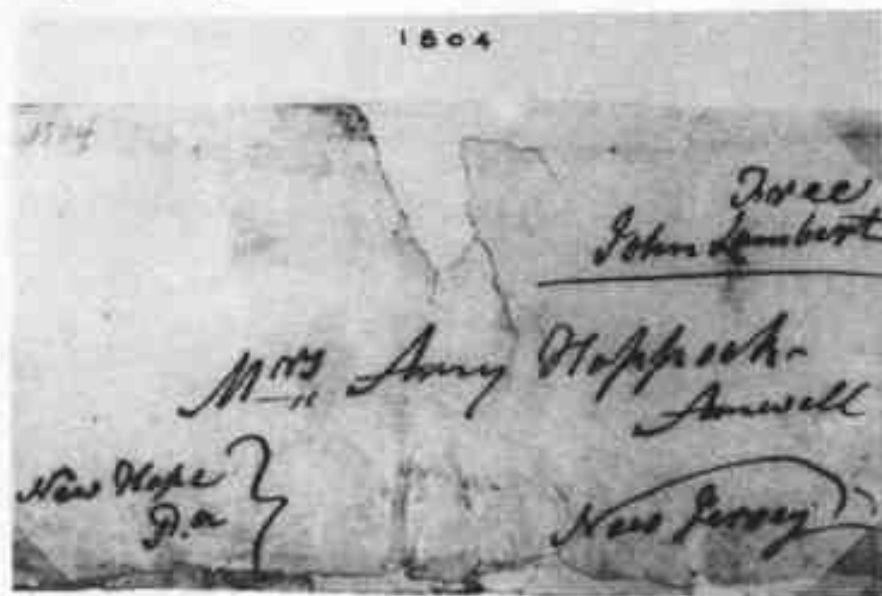 1804
1804
Free
John Lambert
Mrs Amy Hoppock
Amwell
New Hope
Pa
New Jersey